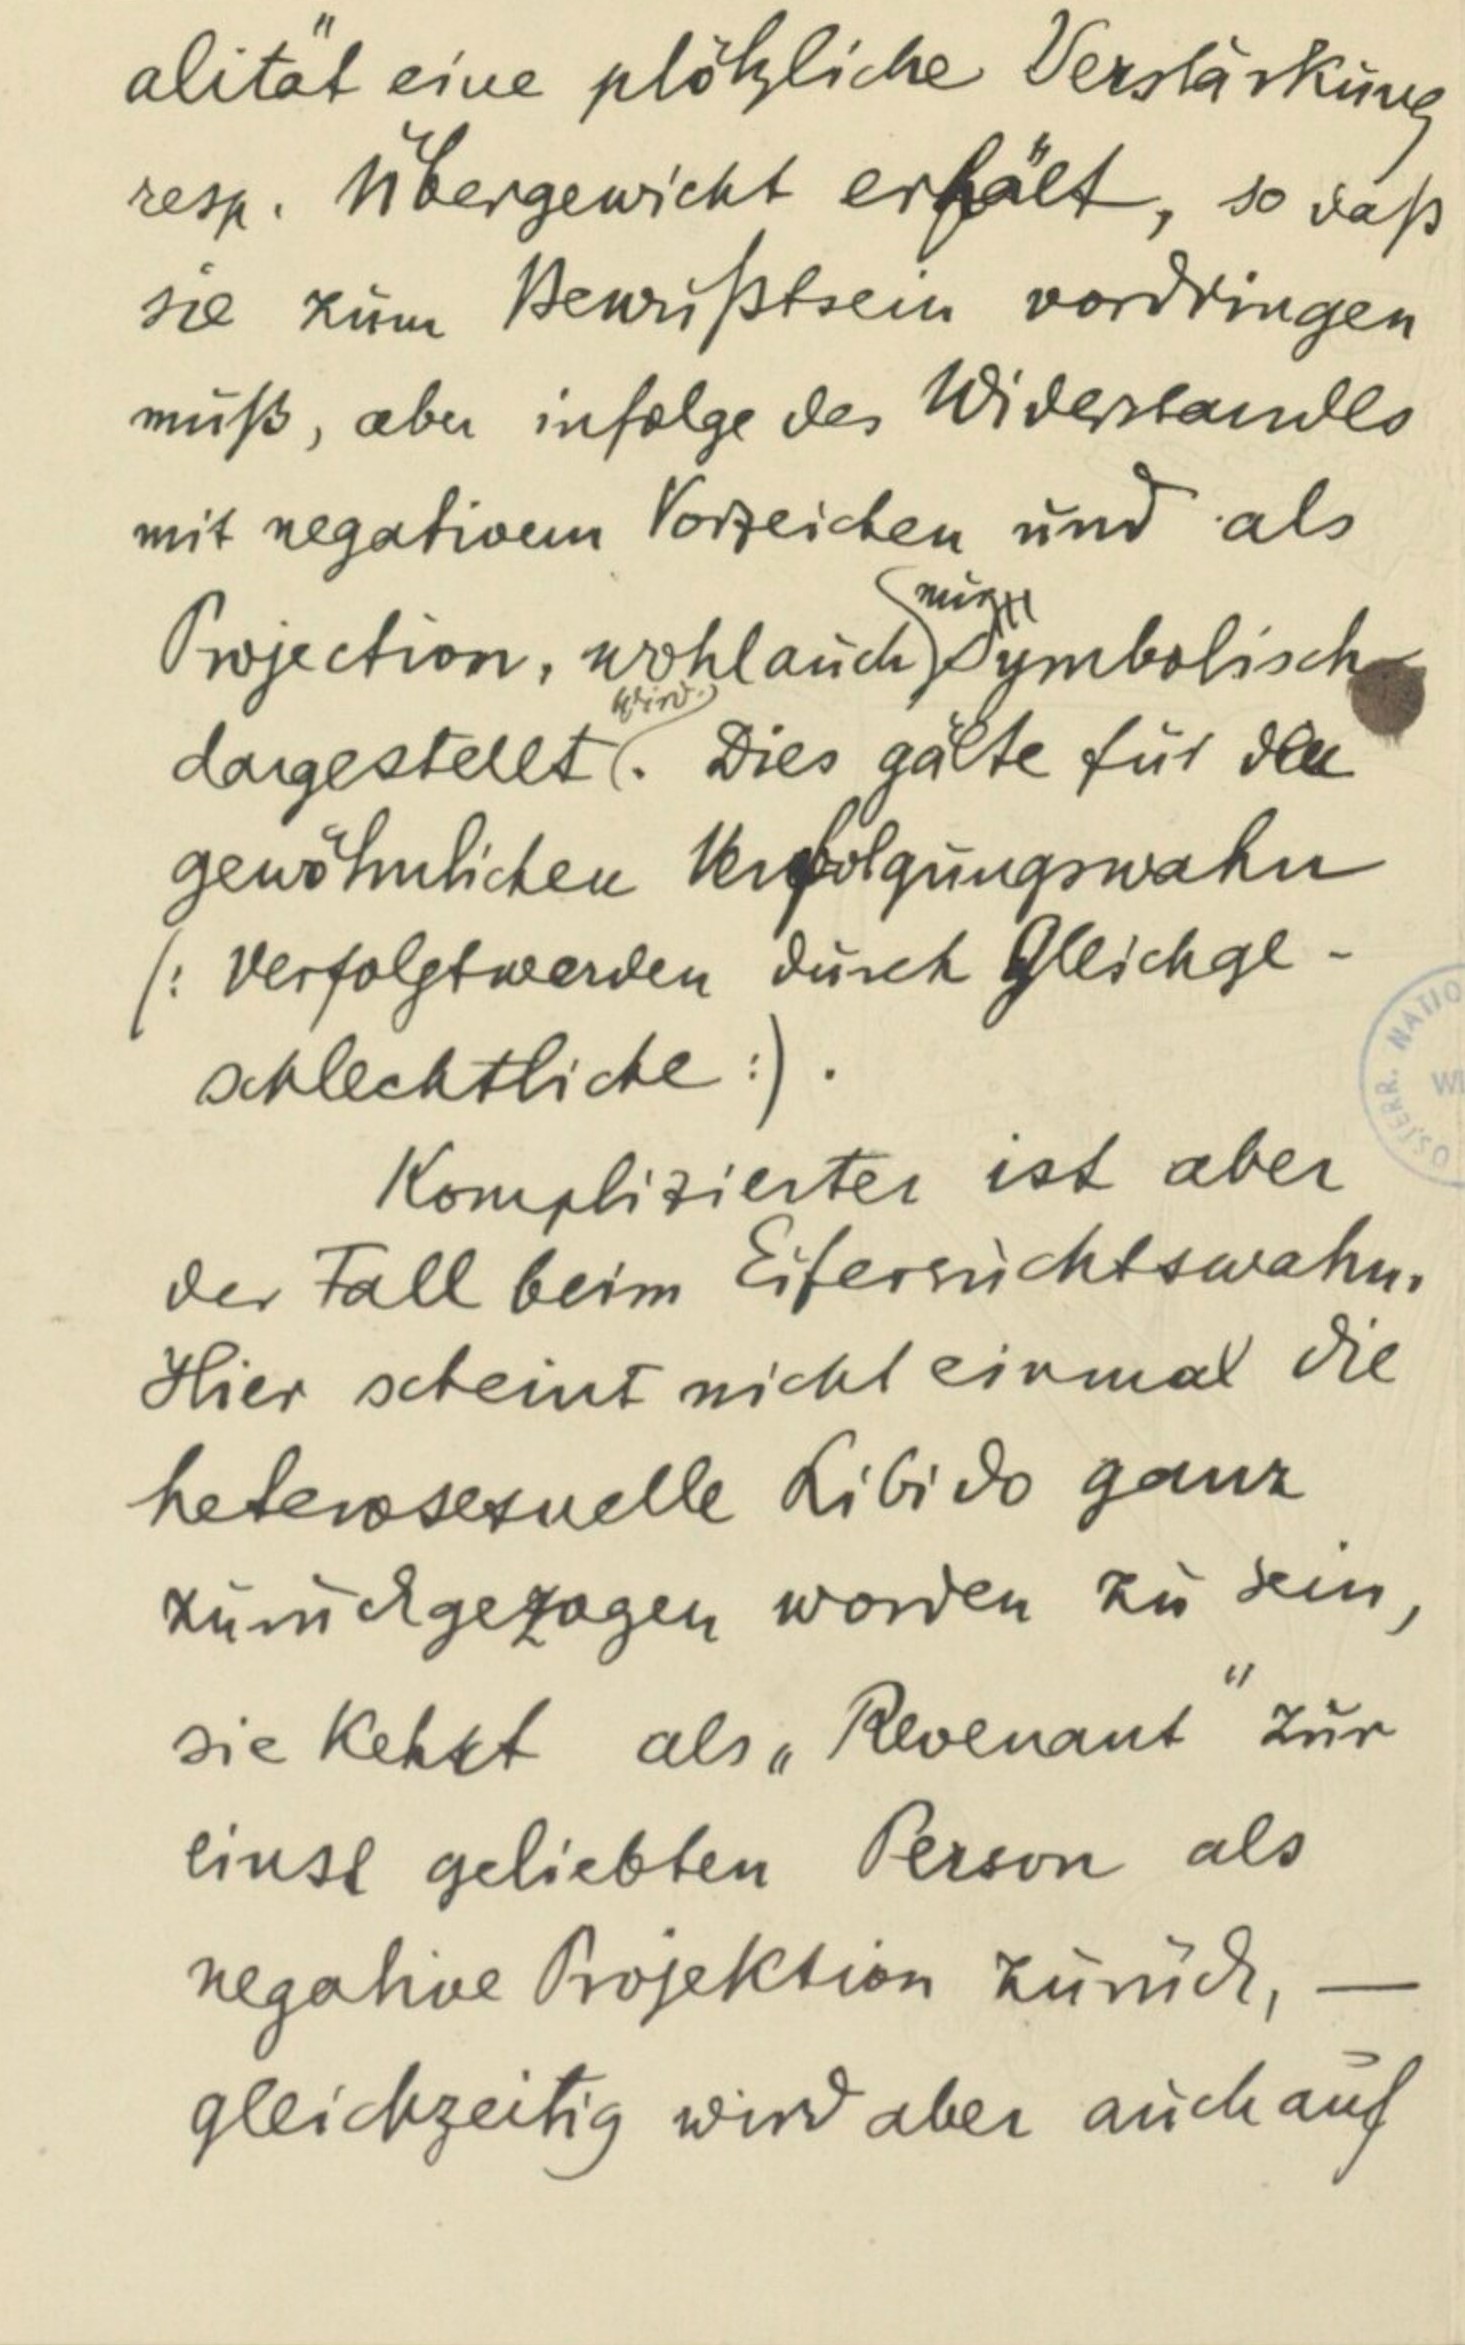 alität eine plötzliche Verstärkung
resp. Übergewicht erhält, so daß
sie zum Bewußtsein vordringen
muß, aber infolge des Widerstandes
mit negativem Vorzeichen und als
nur
Projection, wohl auch symbolisch
wird
dargestellt. Dies gälte für den
gewöhnlichen Verfolgungswahn
(: Verfolgtwerden durch Gleichge-
schlechtliche :).
Komplizierter ist aber
der Fall beim Eifersuchtswahn.
Hier scheint nicht einmal die
heterosexuelle Libido ganz
zurückgezogen worden zu sein,
sie kehrt als „Revenant“ zur
einst geliebten Person als
negative Projektion zurück, —
gleichzeitig wird aber auch auf
ÖSTERR. NATIO
WI